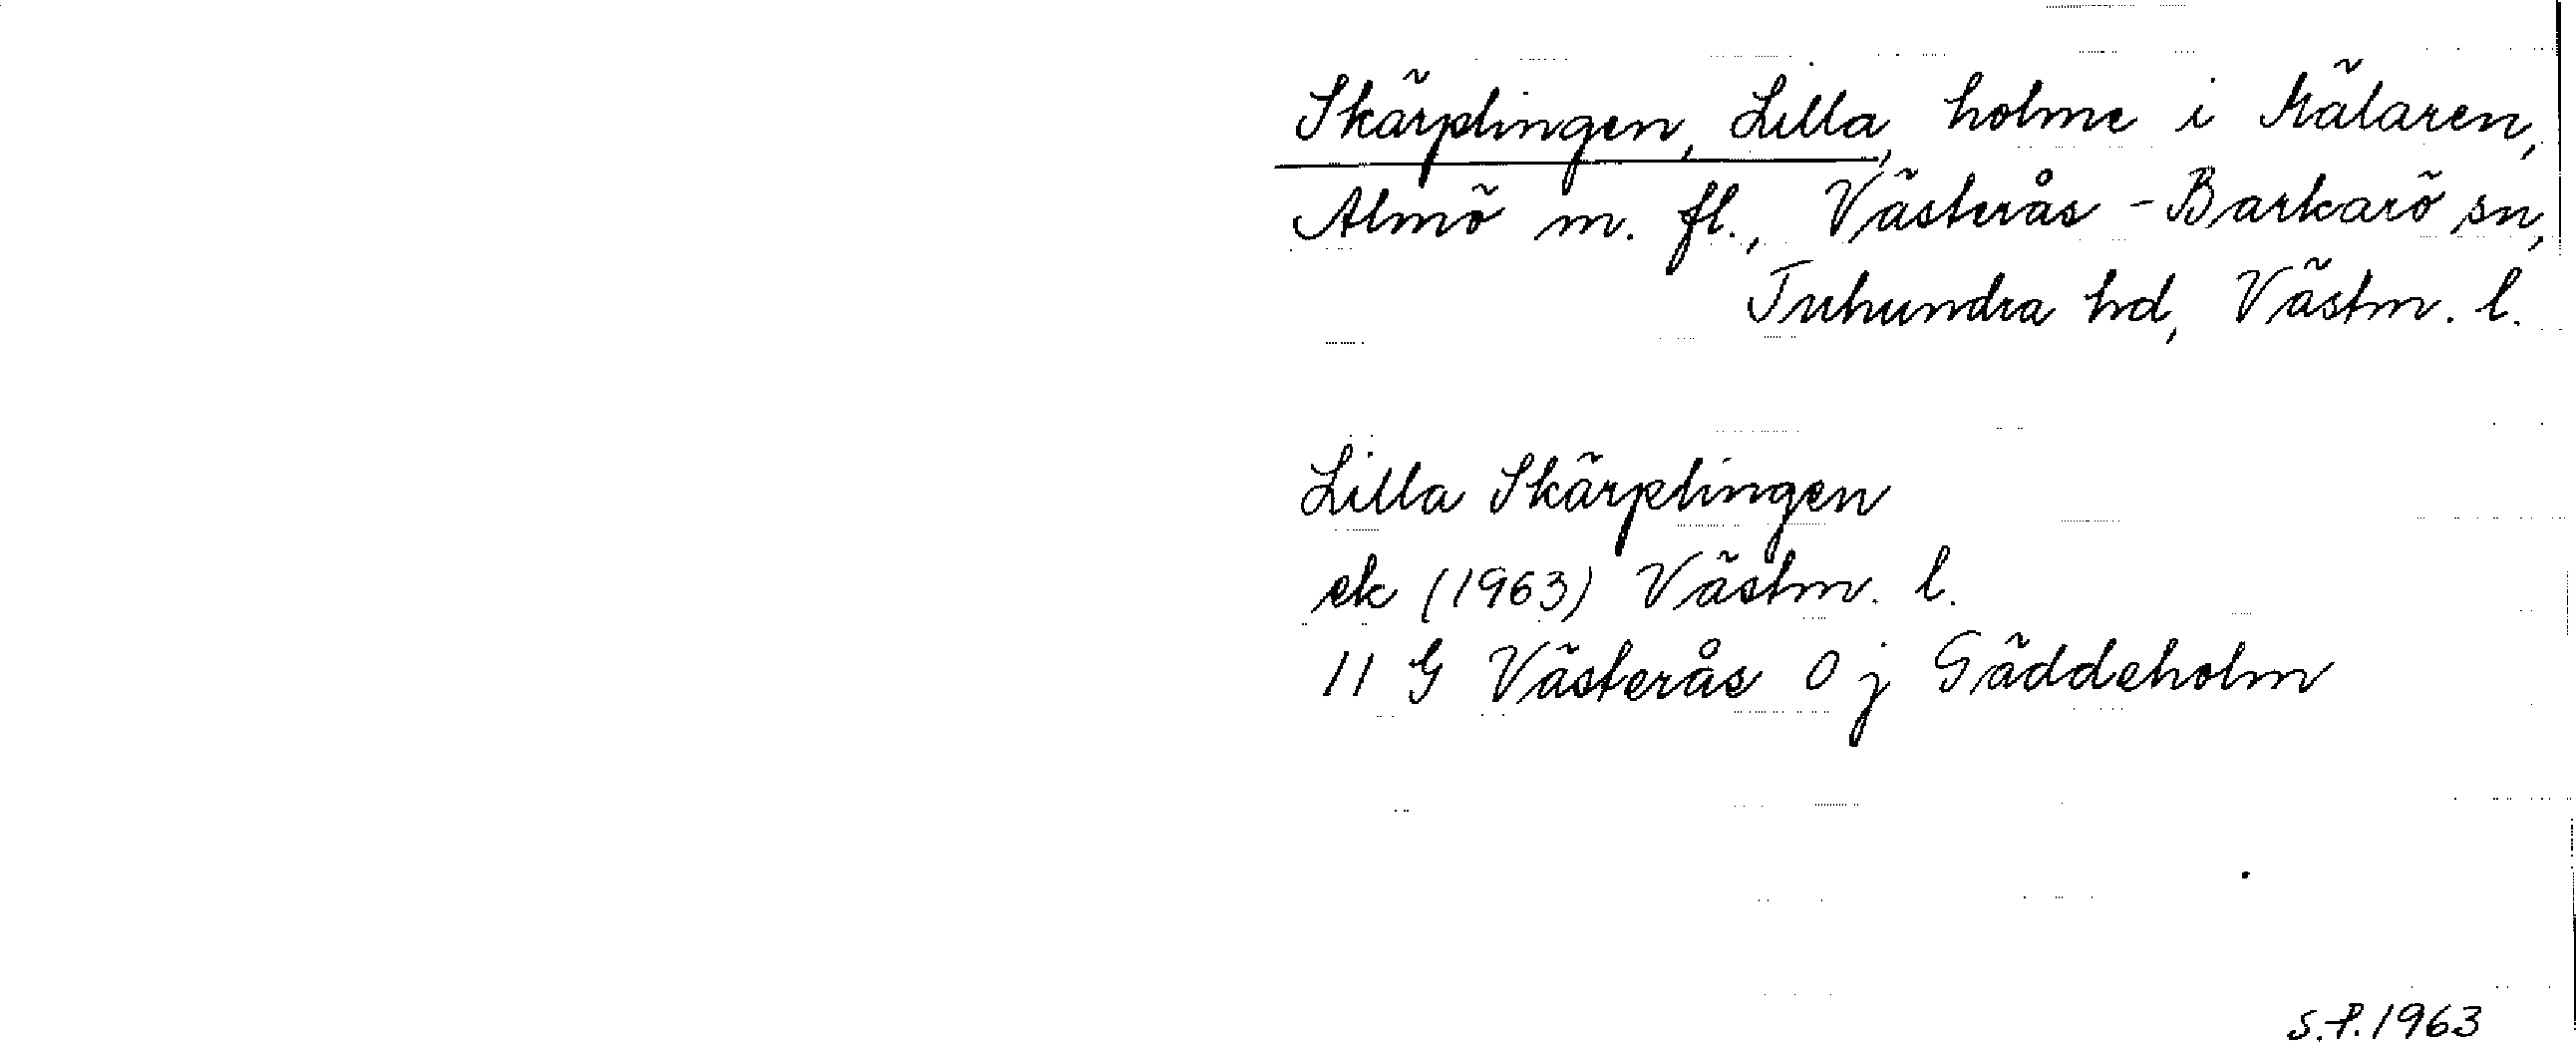 Skärplingen, Lilla, holme i Mälaren,
Almö m. fl., Västerås-Barkarö sn,
Tuhundra hd, Västm. l.
Lilla Skärplingen
ek (1963) Västm. l.
11 G Västerås 0 j Gäddeholm
S.P. 1963